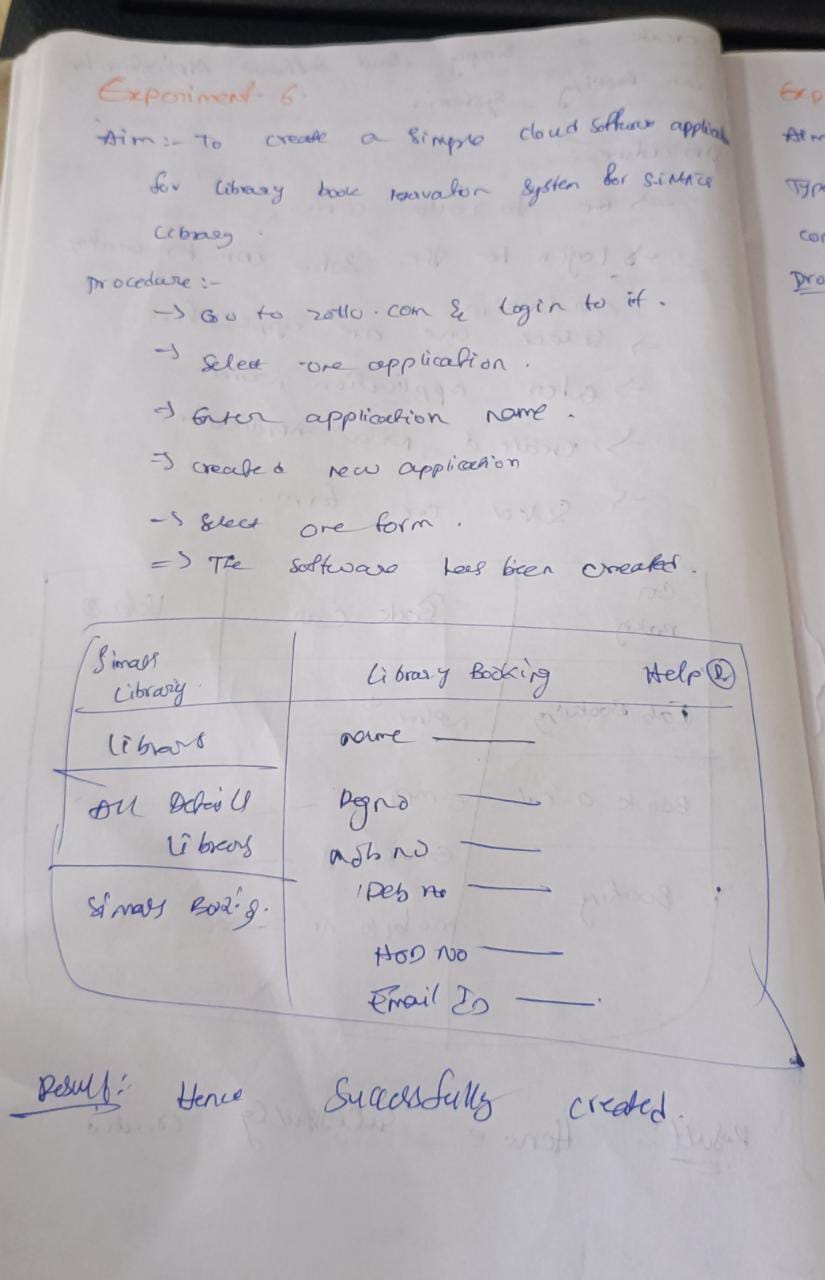 Experiment- 6.
Aim :- To create a Simple cloud Software applicat
for Library book system for SiMATS
Library.
Procedure :-
→ Go to zoHo.com & Login to it.
→ Select one application.
→ Enter application name.
⇒ created new application
→ Select one form.
⇒ The software has been created.
Simats Library Library Booking Help
Library name
All Details Library Regno
mob no
Simats
HOD NO
Email ID
Result:- Hence Successfully created.
Exp
Aim
Type
Con
Pro